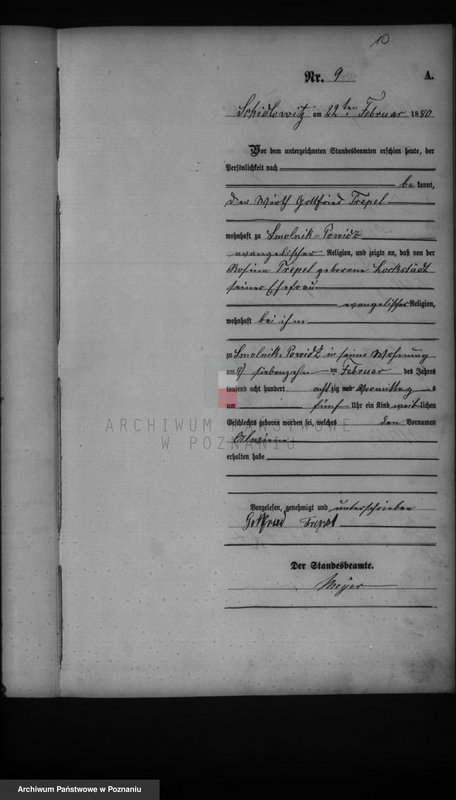 10
Nr. 9 A.
Schidlowitz am 22ten Februar 1880
Vor dem unterzeichneten Standesbeamten erschien heute, der
Persönlichkeit nach
be kannt,
der Wirth Gottfried Trepel
wohnhaft zu Smolnik-Powidz
evangelischer Religion, und zeigte an, daß von der
Rosine Trepel geborene Lockstädt
seiner Ehefrau
evangelischer Religion,
wohnhaft bei ihm
zu Smolnik-Powidz in seiner Wohnung
am siebenzehn ten Februar des Jahres
tausend acht hundert achtzig Vormittag s
um fünf Uhr ein Kind weiblichen
Geschlechts geboren worden sei, welches den Vornamen
erhalten habe
Vorgelesen, genehmigt und unterschrieben
Gottfried Trepel
Der Standesbeamte.
Meyer
ARCHIWUM PAŃSTWOWE
W POZNANIU
Archiwum Państwowe w Poznaniu